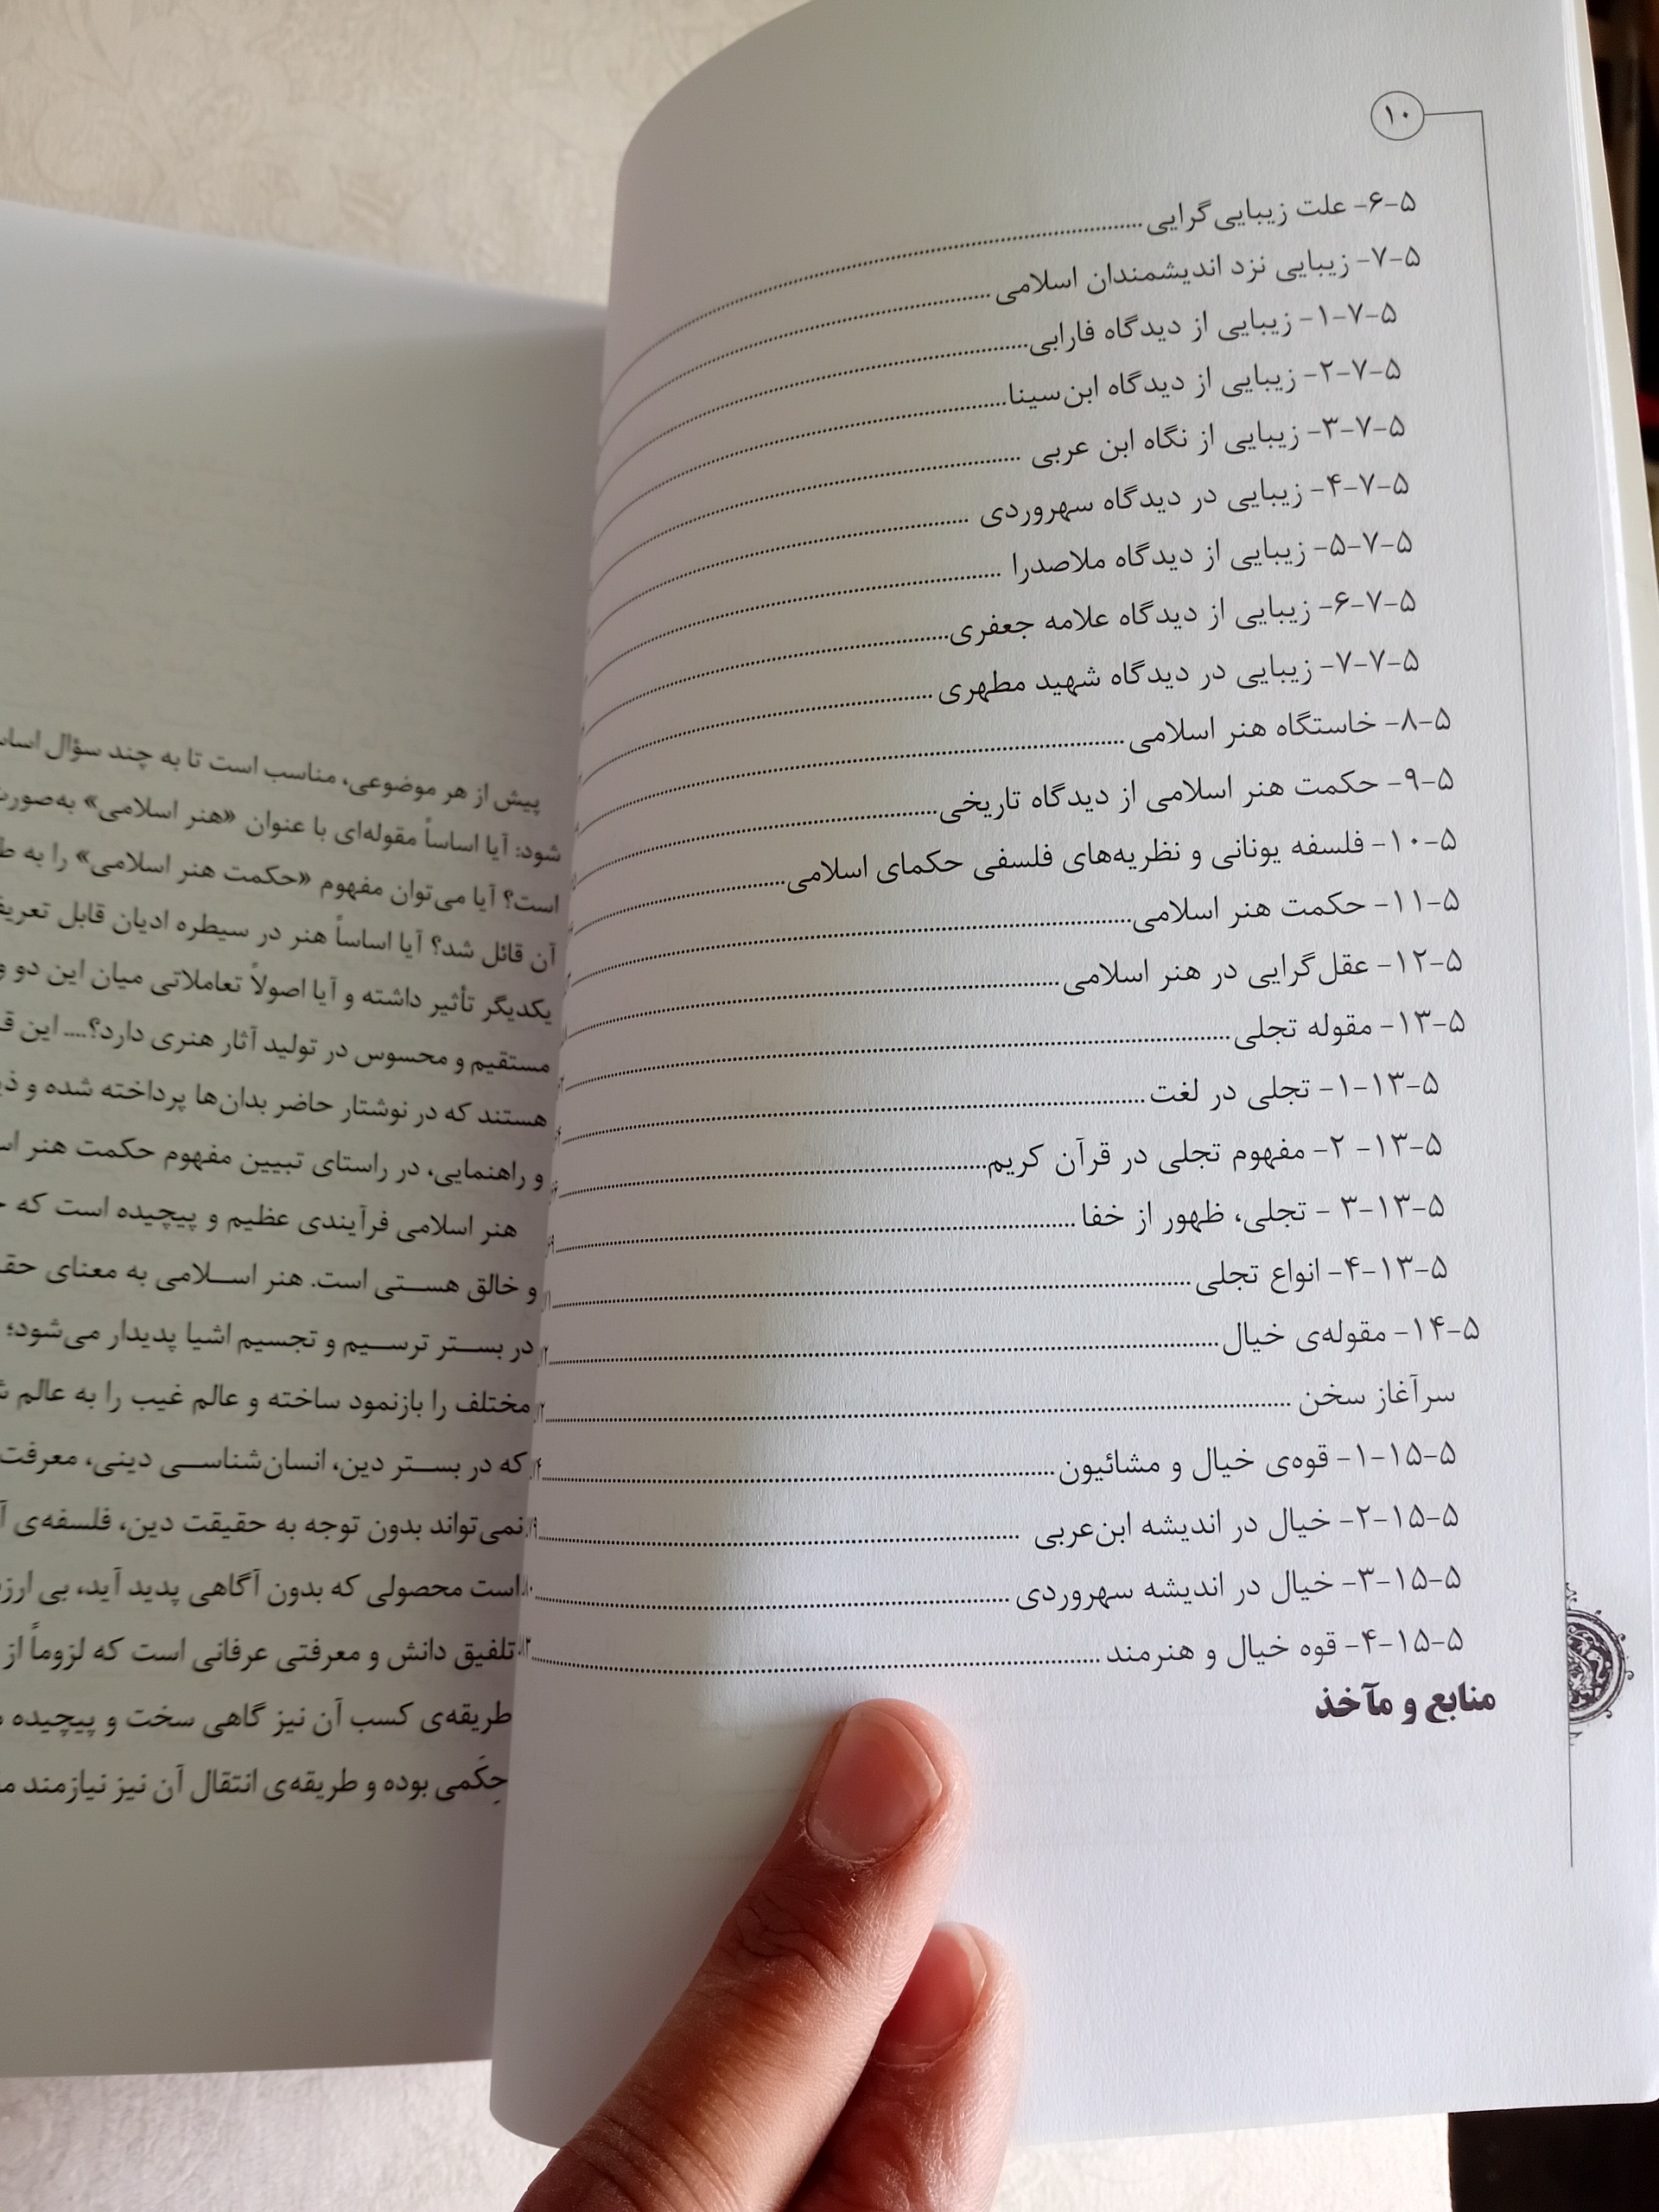 ۱۰
۵-۶- علت زیبایی‌گرایی
۵-۷- زیبایی نزد اندیشمندان اسلامی
۵-۷-۱- زیبایی از دیدگاه فارابی
۵-۷-۲- زیبایی از دیدگاه ابن‌سینا
۵-۷-۳- زیبایی از نگاه ابن عربی
۵-۷-۴- زیبایی در دیدگاه سهروردی
۵-۷-۵- زیبایی از دیدگاه ملاصدرا
۵-۷-۶- زیبایی از دیدگاه علامه جعفری
۵-۷-۷- زیبایی در دیدگاه شهید مطهری
۵-۸- خاستگاه هنر اسلامی
۵-۹- حکمت هنر اسلامی از دیدگاه تاریخی
۵-۱۰- فلسفه یونانی و نظریه‌های فلسفی حکمای اسلامی
۵-۱۱- حکمت هنر اسلامی
۵-۱۲- عقل‌گرایی در هنر اسلامی
۵-۱۳- مقوله تجلی
۵-۱۳-۱- تجلی در لغت
۵-۱۳- ۲- مفهوم تجلی در قرآن کریم
۵-۱۳-۳ - تجلی، ظهور از خفا
۵-۱۳-۴- انواع تجلی
۵-۱۴- مقوله‌ی خیال
سرآغاز سخن
۵-۱۵-۱- قوه‌ی خیال و مشائیون
۵-۱۵-۲- خیال در اندیشه ابن‌عربی
۵-۱۵-۳- خیال در اندیشه سهروردی
۵-۱۵-۴- قوه خیال و هنرمند
منابع و مآخذ
پیش از هر موضوعی، مناسب است تا به چند سؤال
شود: آیا اساساً مقوله‌ای با عنوان «هنر اسلامی»
است؟ آیا می‌توان مفهوم «حکمت هنر اسلامی» را به
آن قائل شد؟ آیا اساساً هنر در سیطره ادیان قابل
یکدیگر تأثیر داشته و آیا اصولاً تعاملاتی میان این دو
مستقیم و محسوس در تولید آثار هنری دارد؟.... این
هستند که در نوشتار حاضر بدان‌ها پرداخته شده و
و راهنمایی، در راستای تبیین مفهوم حکمت هنر
هنر اسلامی فرآیندی عظیم و پیچیده است که
و خالق هستی است. هنر اسلامی به معنای
در بستر ترسیم و تجسیم اشیا پدیدار می‌شود؛
مختلف را بازنمود ساخته و عالم غیب را به عالم
که در بستر دین، انسان‌شناسی دینی، معرفت
نمی‌تواند بدون توجه به حقیقت دین، فلسفه‌ی
است محصولی که بدون آگاهی پدید آید، بی
تلفیق دانش و معرفتی عرفانی است که لزوماً از
طریقه‌ی کسب آن نیز گاهی سخت و پیچیده
حِکَمی بوده و طریقه‌ی انتقال آن نیز نیازمند